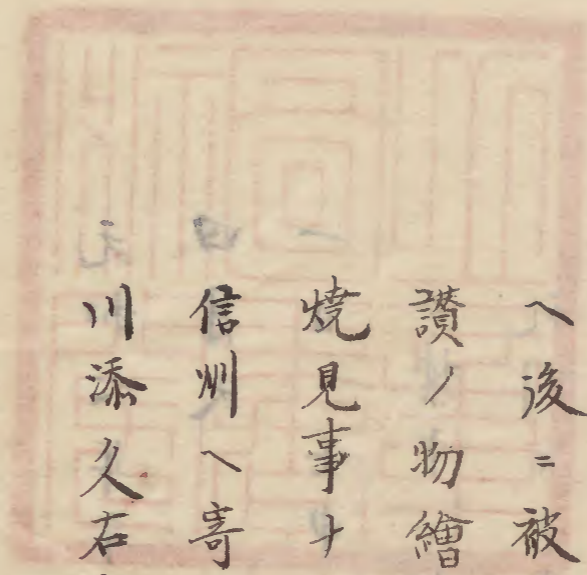 ヘ後ニ被
讃ノ物繪
焼見事ナ
信州ヘ寄
川添久右